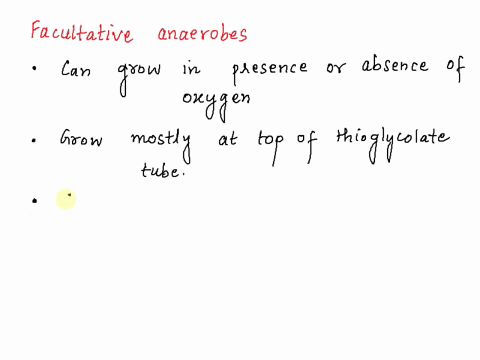 Facultative anaerobes
• Can grow in presence or absence of
oxygen
• Grow mostly at top of thioglycolate
tube.
•